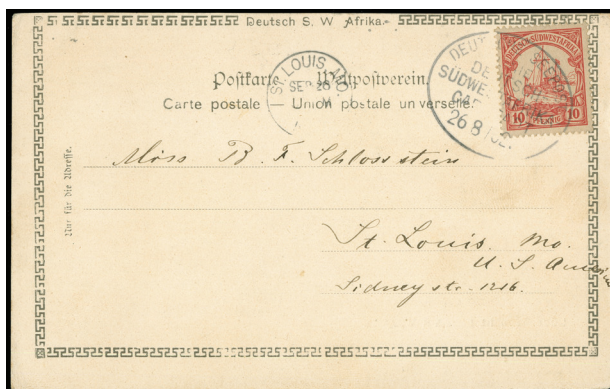 Deutsch S. W. Afrika.
Postkarte Weltpostverein.
Carte postale Union postale universelle.
ST. LOUIS, MO.
SEP 26
DEUTSCHSÜDWESTAFRIKA
10 PFENNIG 10
26 8
Nur für die Adresse.
Miss B. F. Schlossstein
St. Louis. Mo.
U. S. America
Sidney str. 1216.